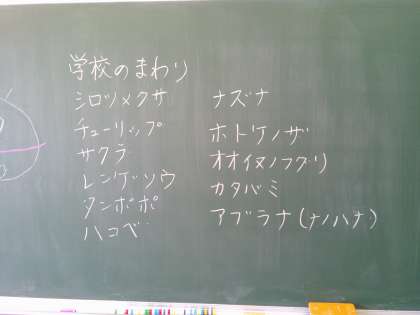 学校のまわり
シロツメクサ
チューリップ
サクラ
レンゲソウ
タンポポ
ハコベ
ナズナ
ホトケノザ
オオイヌノフグリ
カタバミ
アブラナ(ナノハナ)